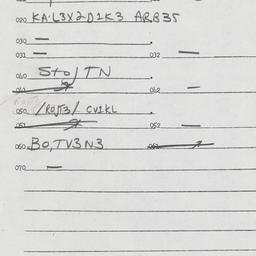 020 KA·L3X2D1K3 ARB35
030 —
031 — 032 —
040 Sto/TN
041 042 —
050 /ROJT3/ CV1KL
051 052 —
060 BO,TV3N3
070 —